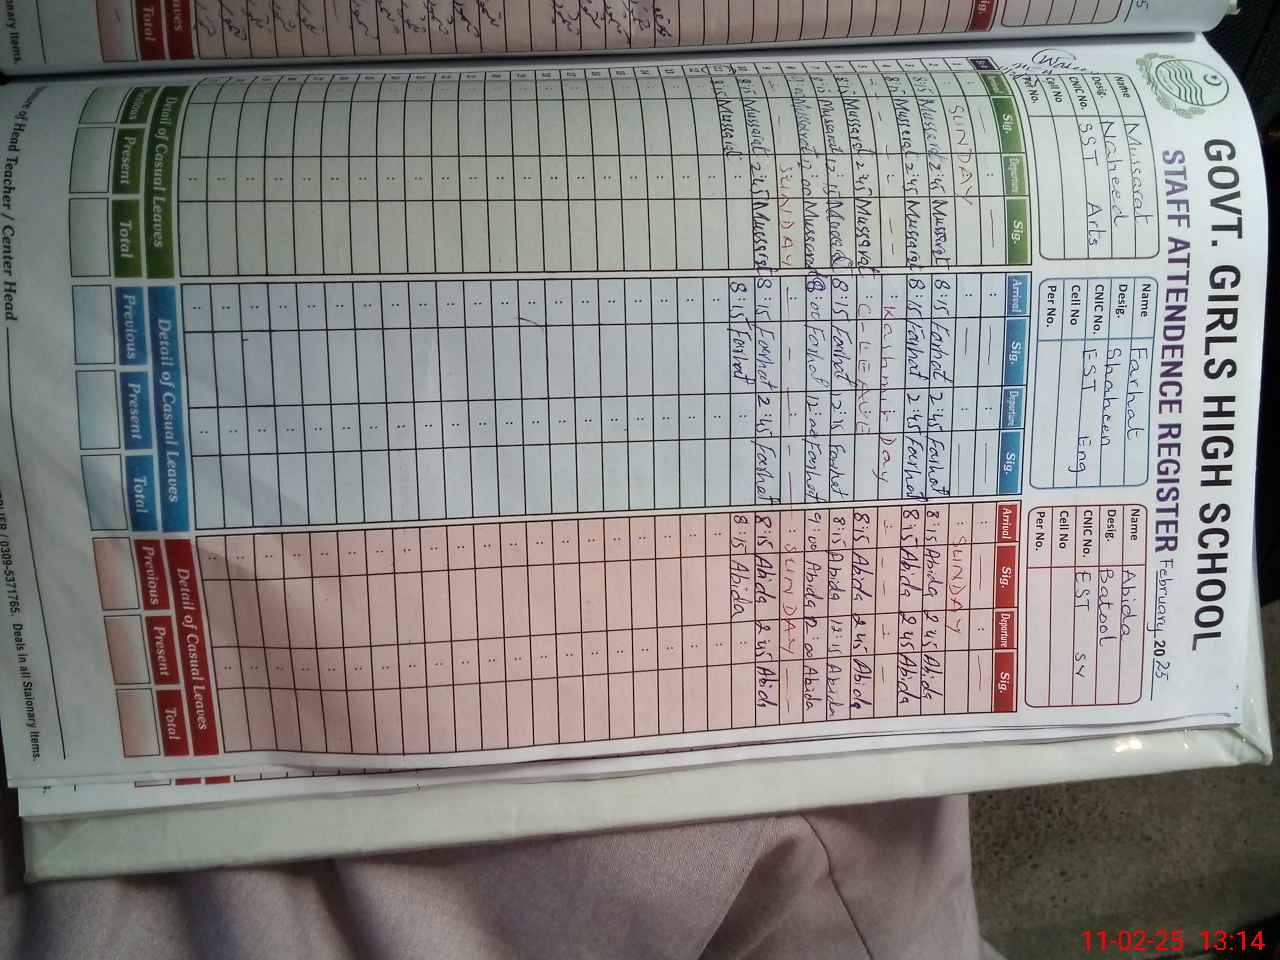 GOVT. GIRLS HIGH SCHOOL
STAFF ATTENDENCE REGISTER February 2025
Name Mussarat
Desig. Naheed
CNIC No. SST Arts
Cell No
Per No.
Name Farhat
Desig. Shaheen
CNIC No. EST Eng
Cell No
Per No.
Name Abida
Desig. Batool
CNIC No. EST
Cell No
Per No.
Sig. Departure Sig. Arrival Sig. Departure Sig. Arrival Sig. Departure Sig.
SUNDAY SUNDAY
8:15 Mussarat 2:45 Mussarat 8:15 Farhat 2:45 Farhat 8:15 Abida 2:45 Abida
8:15 Mussarat 2:45 Mussarat 8:15 Farhat 2:45 Farhat 8:15 Abida 2:45 Abida
Kashmir Day
8:15 Mussarat 2:45 Mussarat C-LEAVE 8:15 Abida 2:45 Abida
8:15 Mussarat 12:15 8:15 Farhat 12:15 Farhat 8:15 Abida 12:15 Abida
Mussarat 12:00 Mussarat 8:00 Farhat 12:00 Farhat 9:00 Abida 12:00 Abida
SUNDAY SUNDAY
8:15 Mussarat 2:45 Mussarat 8:15 Farhat 2:45 Farhat 8:15 Abida 2:45 Abida
8:15 Mussarat 8:15 Farhat 8:15 Abida
Detail of Casual Leaves Detail of Casual Leaves Detail of Casual Leaves
Previous Present Total Previous Present Total Previous Present Total
of Head Teacher / Center Head
/ 0309-5371765. Deals in all Stationary Items.
11-02-25 13:14